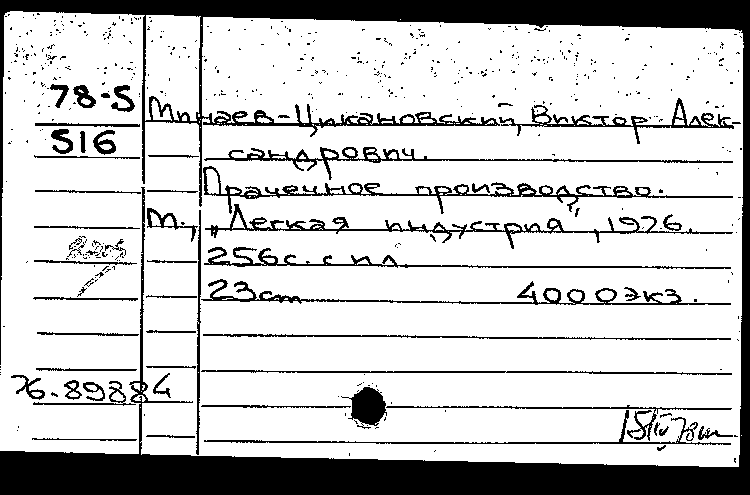 78-S
Минаев-Цикановский, Виктор Алек-
S16
сандрович.
Прачечное производство.
М., „Легкая индустрия", 1976.
256с. с ил.
23cm 4000экз.
76.89884